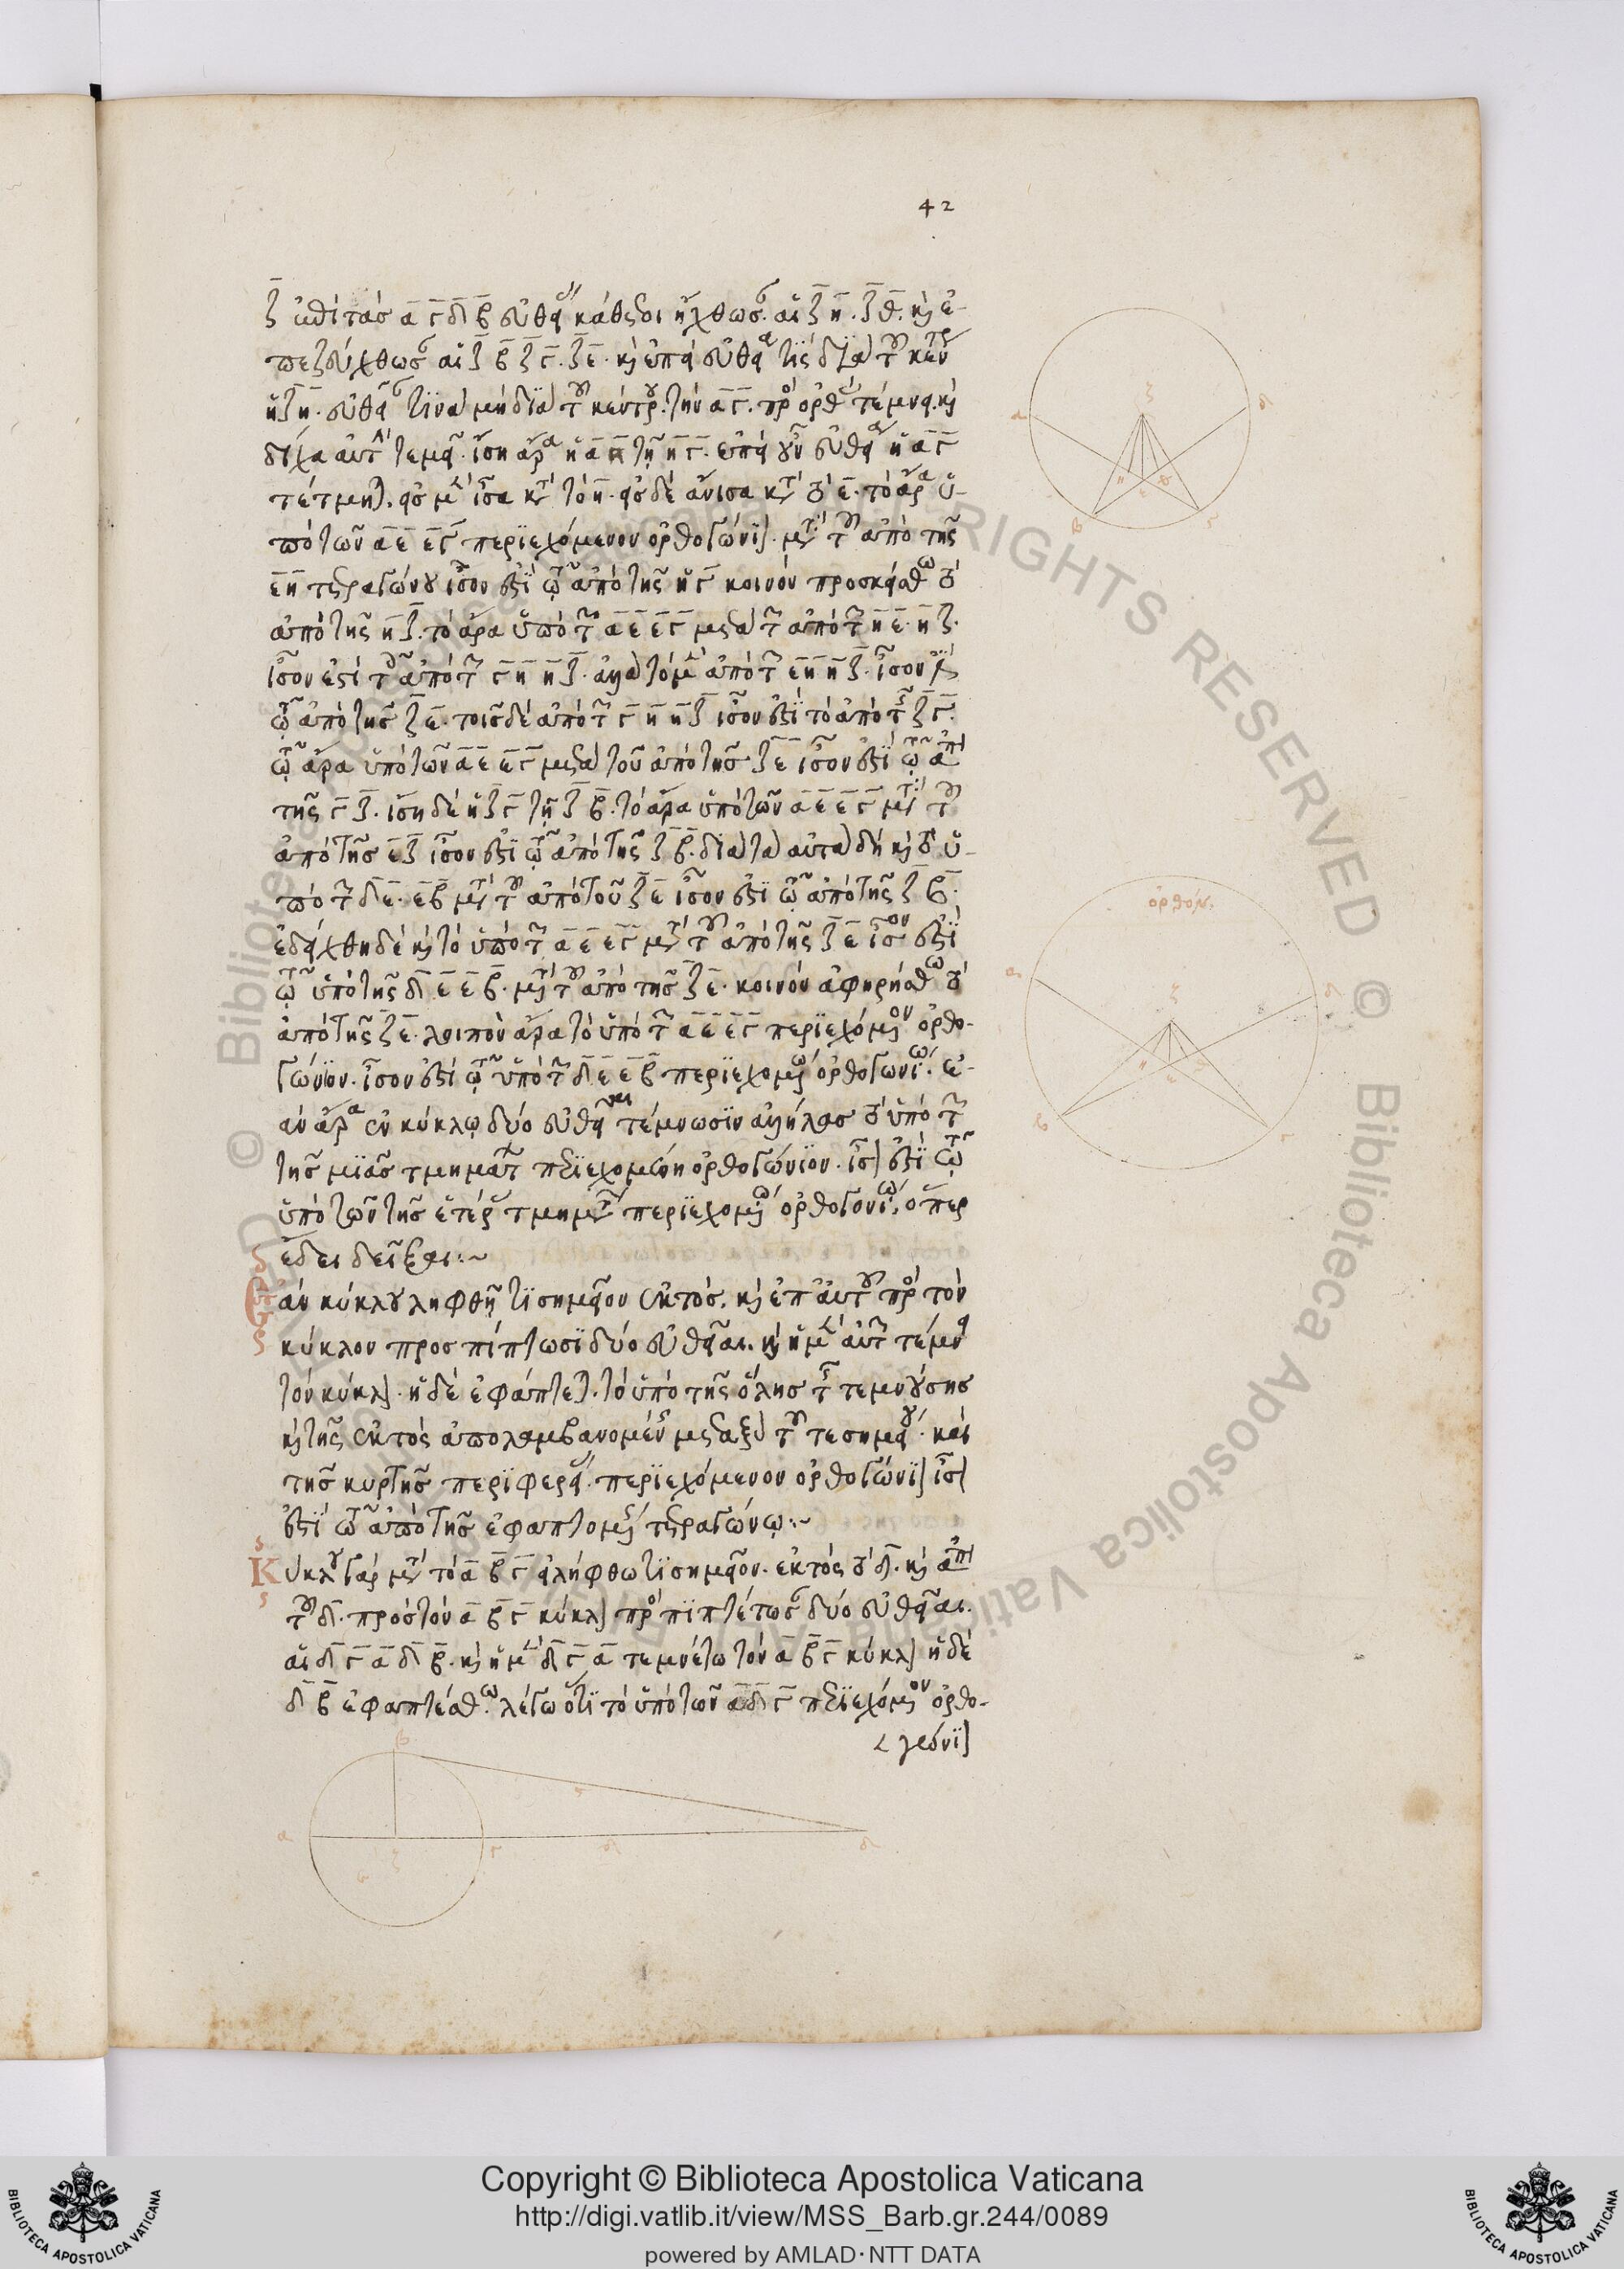 42
ζ ἐπὶ τὰσ α γ δ β εὐθείας κάθετοι ἤχθωσαν. αἱ ζ η. ζ θ. καὶ ἐ-
πεζεύχθωσαν αἱ ζ β ζ γ. ζ ε. καὶ ἐπεὶ εὐθεῖα τὶς διὰ τοῦ κέντρου
ἡ ζ η. εὐθεῖαν τινὰ μὴ διὰ τοῦ κέντρου. τὴν α γ. πρὸς ὀρθὰς τέμνει. καὶ
δίχα αὐτὴν τεμεῖ. ἴση ἄρα ἡ α η τῇ η γ. ἐπεὶ οὖν εὐθεῖα ἡ α γ
τέτμηται. εἰσ μὲν ἴσα κατὰ τὸ η. εἰσ δὲ ἄνισα κατὰ τὸ ε. τὸ ἄρα ὑ-
πὸ τῶν α ε ε γ περϊεχόμενον ὀρθογώνϊον. μετὰ τοῦ ἀπὸ τῆς
ε η τετραγώνου ἴσον ἐστὶ τῷ ἀπὸ τῆς η γ κοινὸν προσκείσθω τὸ
ἀπὸ τῆς η ζ. τὸ ἄρα ὑπὸ τῶν α ε ε γ μετὰ τῶν ἀπὸ τῶν η ε. η ζ.
ἴσον ἐστὶ τοῖς ἀπὸ τῶν γ η η ζ. ἀλλὰ τὸ μὲν ἀπὸ τῶν ε η η ζ. ἴσον ἐστὶ
τῷ ἀπὸ τησ ζ ε. τοισ δὲ ἀπὸ τῶν γ η η ζ ἴσον ἐστὶ τὸ ἀπὸ τῆς ζ γ.
τῷ ἄρα ὑπὸ τῶν α ε ε γ μετὰ τοῦ ἀπὸ τησ ζ ε ἴσον ἐστὶ τῷ ἀπὸ
τῆς γ ζ. ἴση δὲ ἡ ζ γ τῇ ζ β. τὸ ἄρα ὑπὸ τῶν α ε ε γ μετὰ τοῦ
ἀπὸ τῆσ ε ζ ἴσον ἐστὶ τῷ ἀπὸ τῆς ζ β. διὰ τὰ αὐτὰ δὴ καὶ τὸ ὑ-
πὸ τῶν δ ε. ε β μετὰ τοῦ ἀπὸ τοῦ ζ ε ἴσον ἐστὶ τῷ ἀπὸ τῆς ζ β.
ἐδείχθη δὲ καὶ τὸ ὑπὸ τῶν α ε ε γ μετὰ τοῦ ἀπὸ τῆς ζ ε ἴσον ἐστὶ
τῷ ὑπὸ τῆς δ ε ε β. μετὰ τοῦ ἀπὸ τησ ζ ε. κοινὸν ἀφηρήσθω τὸ
ἀπὸ τῆς ζ ε. λοιπὸν ἄρα τὸ ὑπὸ τῶν α ε ε γ περϊεχόμενον ὀρθο-
γώνϊον. ἴσον ἐστὶ τῷ ὑπὸ τῶν δ ε ε β περϊεχομένω ὀρθογωνίω. ἐ-
ὰν ἄρα ἐν κύκλῳ δύο εὐθεῖαι τέμνωσϊν ἀλλήλασ τὸ ὑπὸ τῶν
τῆσ μϊᾶσ τμημάτων περϊεχομένη ὀρθογώνϊον. ἴσον ἐστὶ τῷ
ὑπὸ τῶν τῆσ ἑτέρας τμημάτων περϊεχομένω ὀρθογονίω. ὅπερ
ἔδει δεῖξαι:~
ἐὰν κύκλου ληφθῇ τϊ σημεῖον ἐκτόσ. καὶ ἐπ' αὐτοῦ πρὸς τὸν
κύκλον προσπίπτωσϊ δύο εὐθεῖαι. καὶ ἡ μὲν αὐτῶν τέμνει
τὸν κύκλον. ἡ δὲ ἐφάπτεται. τὸ ὑπὸ τῆς ὅλησ τῆς τεμνούσησ
καὶ τῆς ἐκτὸς ἀπολαμβανομένης μεταξὺ τοῦ τε σημείου. καὶ
τῆσ κυρτῆσ περϊφερείας. περϊεχόμενον ὀρθογώνϊον ἴσον
ἐστὶ τῷ ἀπὸ τῆσ ἐφαπτομένης τετραγώνῳ:~
Κύκλου γάρ μετὰ τὸ α β γ εἰλήφθω τϊ σημεῖον. ἐκτὸς τὸ δ. καὶ ἀπὸ
τοῦ δ. πρὸσ τὸν α β γ κύκλον προσπϊπτέτωσαν δύο εὐθεῖαι.
αἱ δ γ α δ β. καὶ ἡ μὲν δ γ α τεμνέτω τὸν α β γ κύκλον ἡ δὲ
δ β ἐφαπτέσθω. λέγω ὅτϊ τὸ ὑπὸ τῶν α δ γ περϊεχόμενον ὀρθο-
γώνϊον
ὀρθόν.
Copyright © Biblioteca Apostolica Vaticana
http://digi.vatlib.it/view/MSS_Barb.gr.244/0089
powered by AMLAD·NTT DATA